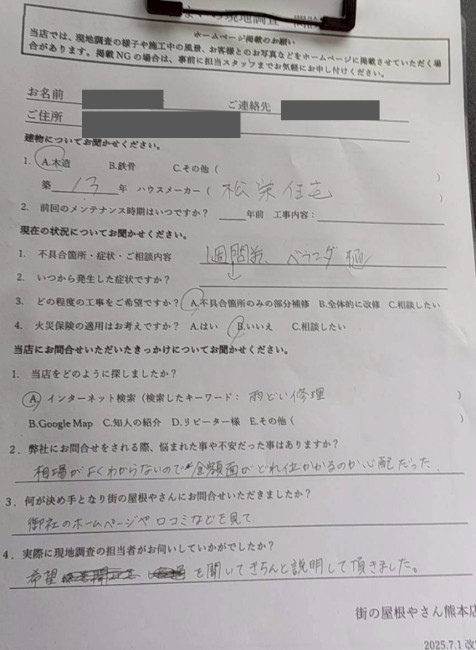 まいの現地調査
ホームページ掲載のお願い
当店では、現地調査の様子や施工中の風景、お客様とのお写真などをホームページに掲載させていただく場
合があります。掲載NGの場合は、事前に担当スタッフまでお気軽にお申し付けください。
お名前 ご連絡先
ご住所
建物についてお聞かせください。
1. A.木造 B.鉄骨 C.その他 ( )
築 13 年 ハウスメーカー ( 松栄住宅 )
2. 前回のメンテナンス時期はいつですか? 年前 工事内容:
現在の状況についてお聞かせください。
1. 不具合箇所・症状・ご相談内容 1週間前、ベランダ樋
2. いつから発生した症状ですか?
3. どの程度の工事をご希望ですか? A.不具合箇所のみの部分補修 B.全体的に改修 C.相談したい
4. 火災保険の適用はお考えですか? A.はい B.いいえ C.相談したい
当店にお問合せいただいたきっかけについてお聞かせください。
1. 当店をどのように探しましたか?
A インターネット検索 (検索したキーワード: 雨どい修理 )
B.Google Map C.知人の紹介 D.リピーター様 E.その他 ( )
2. 弊社にお問合せをされる際、悩まれた事や不安だった事はありますか?
相場がよくわからないので金額面がどれ位かかるのか心配だった。
3. 何が決め手となり街の屋根やさんにお問合せいただきましたか?
御社のホームページや口コミなどを見て
4. 実際に現地調査の担当者がお伺いしていかがでしたか?
希望 を聞いてきちんと説明して頂きました。
街の屋根やさん熊本店
2025.7.1 改